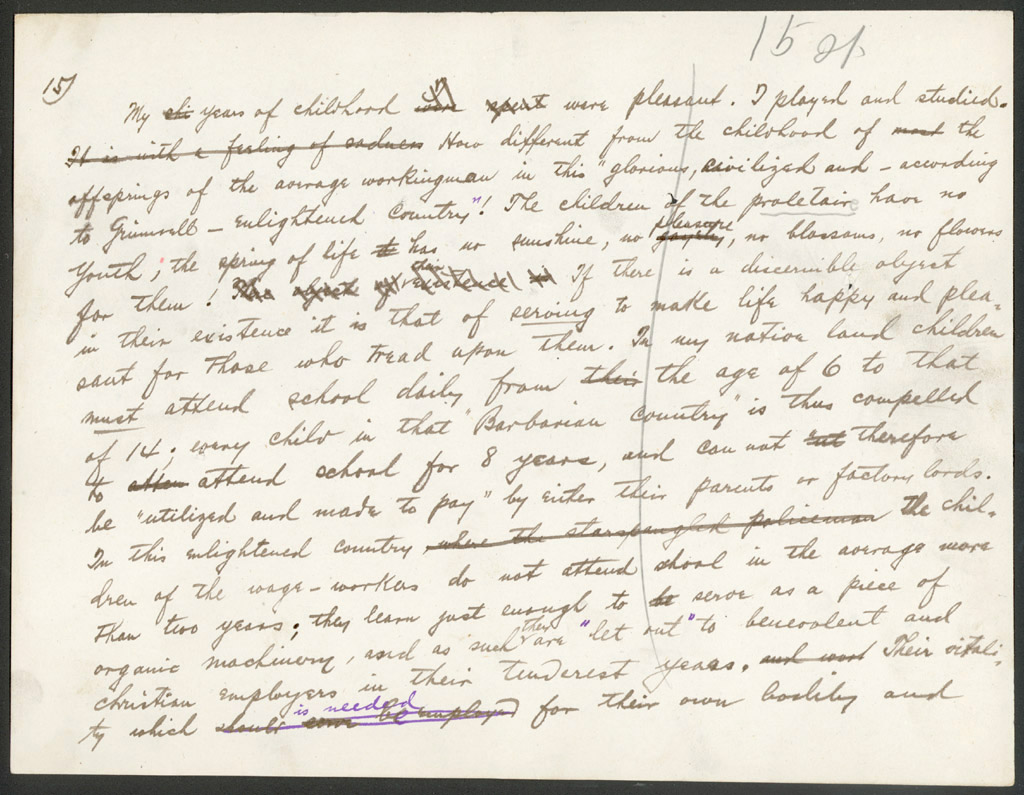 15 2p.
15)
My years of childhood were pleasant. I played and studied.
It is with a feeling of sadness How different from the childhood of most the
offsprings of the average workingman in this "glorious, civilized and - according
to Grinnell - enlightened Country"! The children of the proletair have no
Youth; the spring of life has no sunshine, no pleasure, no blossoms, no flowers
for them! The object of their existence is If there is a discernible object
in their existence it is that of serving to make life happy and plea-
sant for those who tread upon them. In my native land children
must attend school daily from their the age of 6 to that
of 14; every child in that "Barbarian Country" is thus compelled
to atten attend school for 8 years, and can not therefore
be "utilized and made to pay" by either their parents or factory lords.
In this enlightened country where the starspangled policeman the chil-
dren of the wage-workers do not attend shool in the average more
than two years; they learn just enough to be serve as a piece of
organic machinery, and as such they are "let out" to benevolent and
christian employers in their tenderest years. and work Their vitali-
ty which is needed for their own bodily and